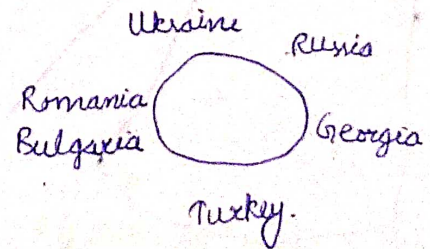 Ukraine
Russia
Romania
Bulgaria
Georgia
Turkey.